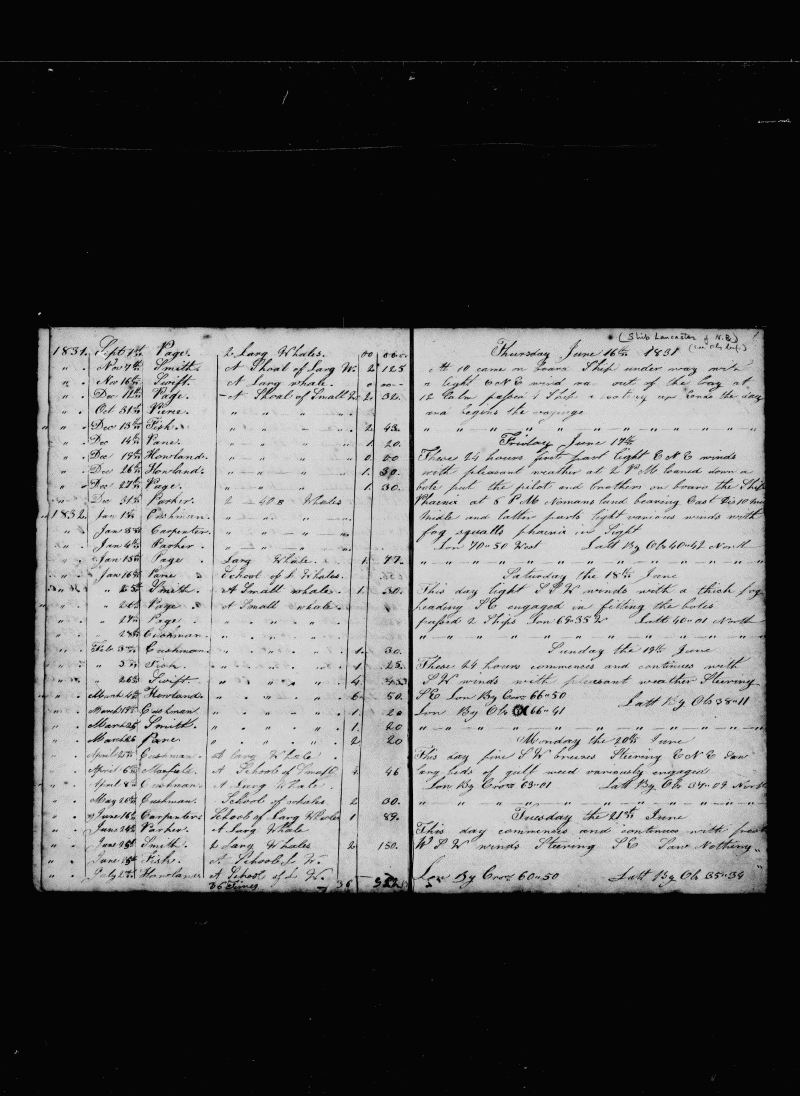 1831. Sept 1th Page. 2 Larg Whales. 00 000
" . Nov 9th Smith. A Shoal of Larg W. 2 125
" . Nov 16th Swift. A Larg whale. 0 00
" . Dec 11th Page. A Shoal of Small 2. 32.
" . Oct 31th Pierce. " " " "
" . Dec 13th Fish. " " " " 2 43.
" . Dec 14th Pane. " " " " 1 20.
" . Dec 19th Howland. " " " " 0. 00
" . Dec 26th Howland. " " " " 1. 30.
" . Dec 27th Page. " " " " 1. 30.
" . Dec 31th Parker. 2 Whales
1832. Jan 1th Cushman. " " "
" . Jan 3th Carpenter. " " "
" . Jan 4th Parker. " " "
" . Jan 15th Page Larg Whale. 1. 77.
" . Jan 16th Pane School of L Whales.
" . " Smith. A Small whales. 1. 30.
" . " 26th Page A Small whale.
" . " 27th Page. " " " "
" . " 28th Cushman. " " " "
" . Feb 3th Cushman. " " " " 1. 30.
" . " 5th Fish. " " " " 1 25.
" . " 26th Swift. " " " " 4
" . March 4th Howland. " " " " 6 50.
" . March 19th Cushman " " " " 1. 20
" . March 25 Smith. " " " " 1. 20
" . March 25 Pane " " " " 2 20
" . April 25th Cushman. A Larg Whale.
" . April 6th A School of Small 46
" . April 8th Cushman. A Larg Whale.
" . May 20th Cushman. School of whales 2 30.
" . June 16th Carpenter. School of Larg Whales 1 89.
" . June 24th Parker. A Larg Whale
" . June 25th Smith. 2 Larg Whales 2 150.
" . June 28th Fish. A School L W.
" . July 27th Howland A School of L W.
36 Times 36
(Ship Lancaster of N.B)
Thursday June 16th 1831
At 10 came on board Ship under way with
a light ENE wind out of the bay at
12 Calm passed 1 Ship the day
and begins the voyage
Friday June 17th
These 24 hours first part light ENE winds
with pleasant weather at 2 PM down a
bote put the pilot and brothers on board the Ship
Phoenix at 8 PM Nomans land bearing East Dis 10 miles
Midle and latter parts light various winds with
fog squalls phoenix in Sight
Lon 70"50 West Latt By Ob 40"42 North
Saturday the 18th June
This day light S W winds with a thick fog
heading SE engaged in fitting the botes
passed 2 Ships Lon 69"35 W Latt 40"01 North
Sunday the 19th June
These 24 hours commences and continues with
S W winds with pleasant weather Steering
SE Lon By Cro 66"50 Latt By Ob 38"11
Lon By Ob 66"41
Monday the 20th June
This day fine S W breezes Steering ENE Saw
larg beds of gulf weed variously engaged
Lon By Cro 63"01 Latt By Ob 37"09 North
Tuesday the 21th June
This day commences and continues with fresh
W S W winds Steering S E Saw Nothing
Lon By Cro 60"50 Latt By Ob 35"34